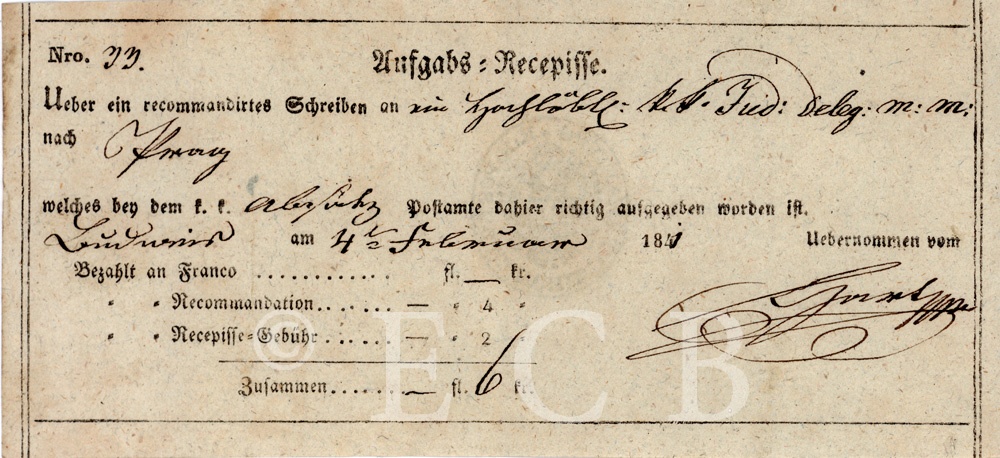 Nro. 33.
Aufgabs=Recepisse.
Ueber ein recommandirtes Schreiben an ein Hochlöbl: k. k. Jud: Deleg: m: m:
nach Prag
welches bey dem k. k. Absatz Postamte dahier richtig aufgegeben worden ist.
Budweis am 4t Februar 1841 Uebernommen vom
Bezahlt an Franco ............ fl. — kr.
" " Recommandation ...... — " 4
" " Recepisse=Gebühr ...... — " 2
Zusammen ....... — fl. 6 kr.
© ECB